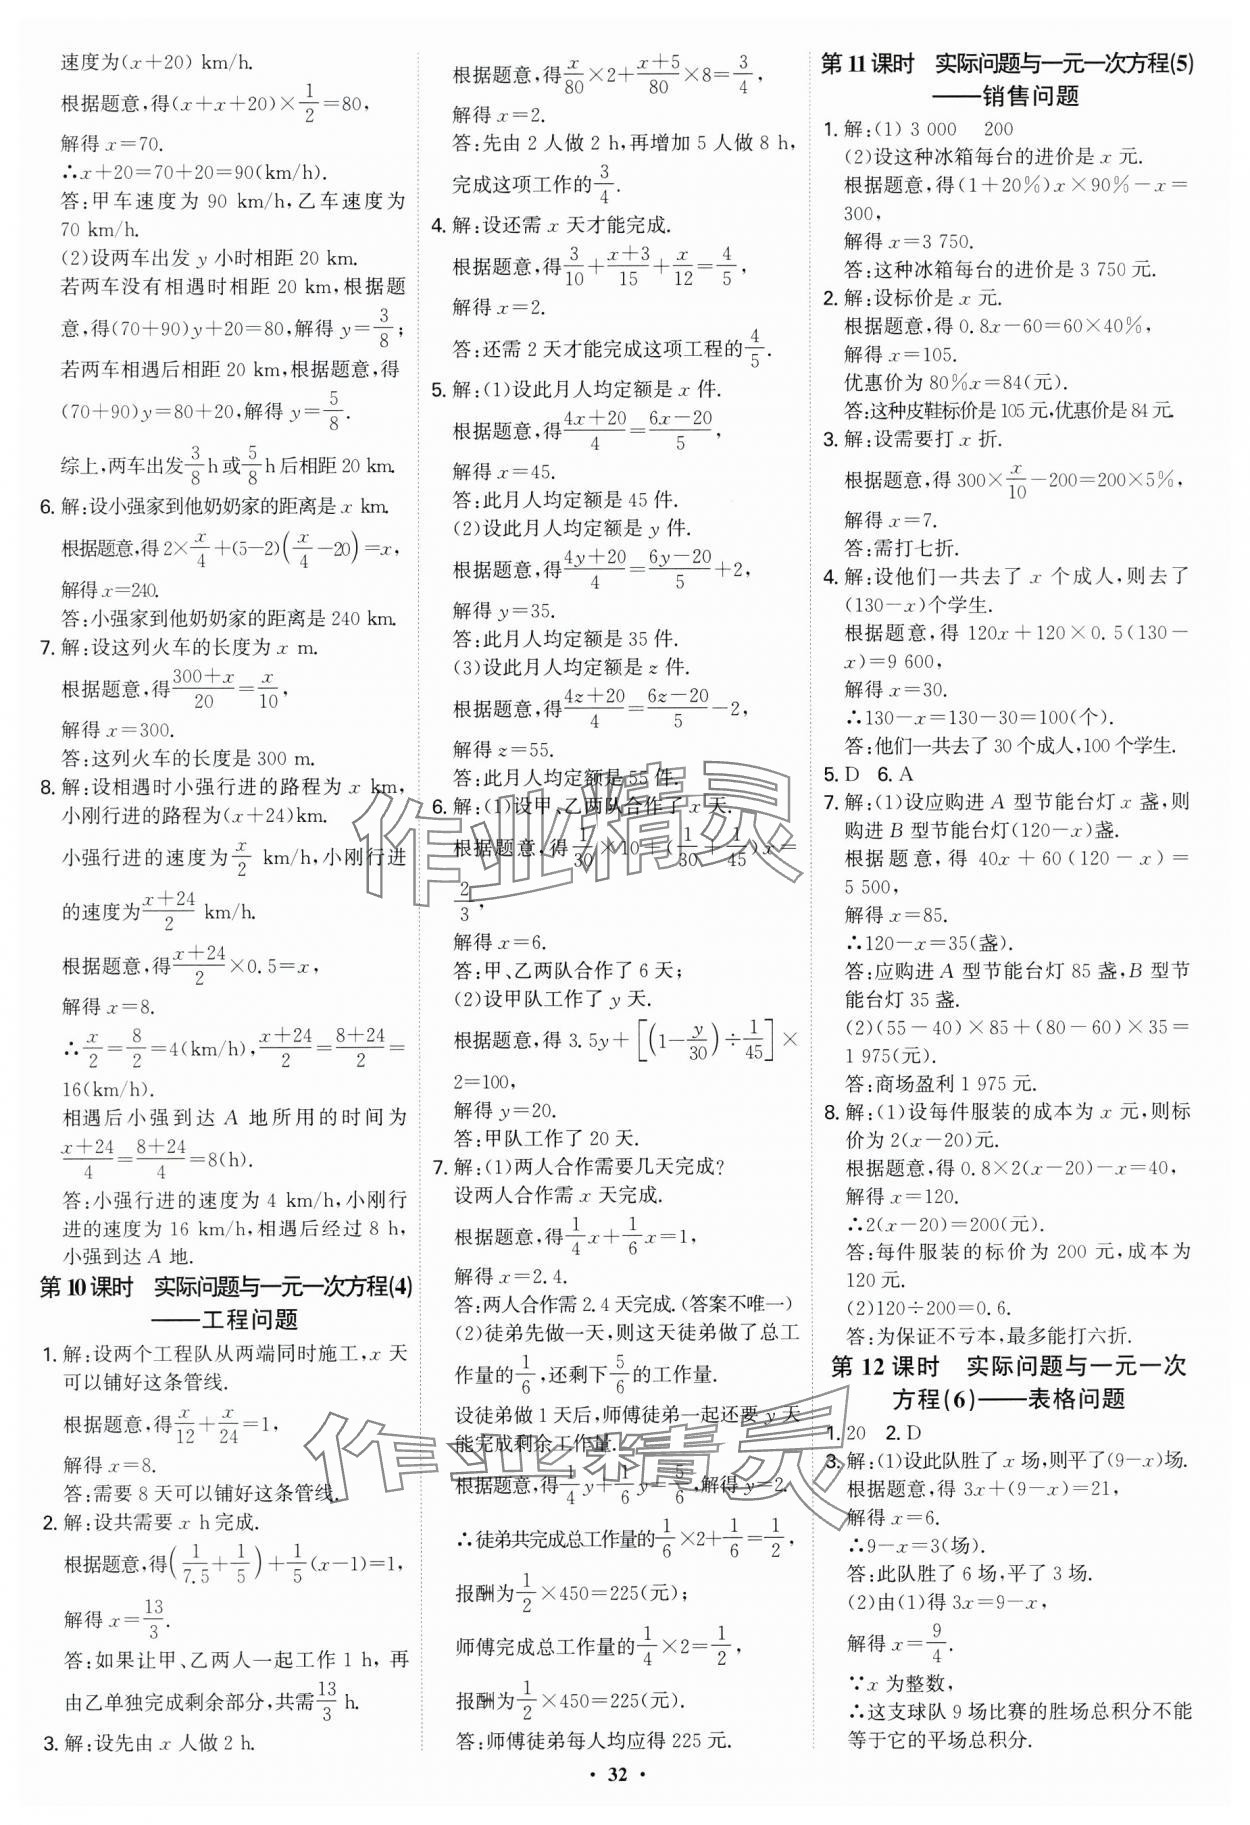 速度为(x+20) km/h.
根据题意,得(x+x+20)×1/2=80,
解得 x=70.
∴x+20=70+20=90(km/h).
答:甲车速度为 90 km/h,乙车速度为
70 km/h.
(2)设两车出发 y 小时相距 20 km.
若两车没有相遇时相距 20 km,根据题
意,得(70+90)y+20=80,解得 y=3/8;
若两车相遇后相距 20 km,根据题意,得
(70+90)y=80+20,解得 y=5/8.
综上,两车出发3/8h或5/8h后相距20 km.
6. 解:设小强家到他奶奶家的距离是 x km.
根据题意,得2×x/4+(5-2)(x/4-20)=x,
解得x=240.
答:小强家到他奶奶家的距离是 240 km.
7. 解:设这列火车的长度为 x m.
根据题意,得(300+x)/20=x/10,
解得 x=300.
答:这列火车的长度是 300 m.
8. 解:设相遇时小强行进的路程为 x km,
小刚行进的路程为(x+24)km.
小强行进的速度为x/2 km/h,小刚行进
的速度为(x+24)/2 km/h.
根据题意,得(x+24)/2×0.5=x,
解得 x=8.
∴x/2=8/2=4(km/h),(x+24)/2=(8+24)/2=
16(km/h).
相遇后小强到达 A 地所用的时间为
(x+24)/4=(8+24)/4=8(h).
答:小强行进的速度为 4 km/h,小刚行
进的速度为 16 km/h,相遇后经过 8 h,
小强到达A 地.
第 10 课时 实际问题与一元一次方程(4)
——工程问题
1. 解:设两个工程队从两端同时施工,x 天
可以铺好这条管线.
根据题意,得x/12+x/24=1,
解得 x=8.
答:需要 8天可以铺好这条管线.
2. 解:设共需要 x h完成.
根据题意,得(1/7.5+1/5)+1/5(x-1)=1,
解得 x=13/3.
答:如果让甲、乙两人一起工作 1 h,再
由乙单独完成剩余部分,共需13/3 h.
3. 解:设先由 x 人做 2 h.
根据题意,得x/80×2+(x+5)/80×8=3/4,
解得 x=2.
答:先由 2 人做 2 h,再增加 5 人做 8 h,
完成这项工作的3/4.
4. 解:设还需 x 天才能完成.
根据题意,得3/10+(x+3)/15+x/12=4/5,
解得 x=2.
答:还需 2 天才能完成这项工程的4/5.
5. 解:(1)设此月人均定额是 x 件.
根据题意,得(4x+20)/4=(6x-20)/5,
解得 x=45.
答:此月人均定额是 45 件.
(2)设此月人均定额是 y 件.
根据题意,得(4y+20)/4=(6y-20)/5+2,
解得 y=35.
答:此月人均定额是 35 件.
(3)设此月人均定额是 z 件.
根据题意,得(4z+20)/4=(6z-20)/5-2,
解得 z=55.
答:此月人均定额是 55 件.
6. 解:(1)设甲、乙两队合作了 x 天.
根据题意,得1/30×10+(1/30+1/45)x=
2/3,
解得 x=6.
答:甲、乙两队合作了 6 天;
(2)设甲队工作了 y 天.
根据题意,得 3.5y+[(1-y/30)÷1/45]×
2=100,
解得 y=20.
答:甲队工作了 20 天.
7. 解:(1)两人合作需要几天完成?
设两人合作需 x 天完成.
根据题意,得1/4x+1/6x=1,
解得 x=2.4.
答:两人合作需 2.4天完成.(答案不唯一)
(2)徒弟先做一天,则这天徒弟做了总工
作量的1/6,还剩下5/6的工作量.
设徒弟做 1 天后,师傅徒弟一起还要 y天
能完成剩余工作量.
根据题意,得1/4y+1/6y=5/6,解得 y=2.
∴徒弟共完成总工作量的1/6×2+1/6=1/2,
报酬为1/2×450=225(元);
师傅完成总工作量的1/4×2=1/2,
报酬为1/2×450=225(元).
答:师傅徒弟每人均应得 225元.
第 11 课时 实际问题与一元一次方程(5)
——销售问题
1. 解:(1) 3 000 200
(2)设这种冰箱每台的进价是 x 元.
根据题意,得(1+20%)x×90%-x=
300,
解得 x=3 750.
答:这种冰箱每台的进价是 3 750 元.
2. 解:设标价是 x 元.
根据题意,得 0.8x-60=60×40%,
解得 x=105.
优惠价为 80%x=84(元).
答:这种皮鞋标价是105元,优惠价是84元.
3. 解:设需要打 x 折.
根据题意,得 300×x/10-200=200×5%,
解得 x=7.
答:需打七折.
4. 解:设他们一共去了 x 个成人,则去了
(130-x)个学生.
根据题意,得 120x+120×0.5(130-
x)=9 600,
解得 x=30.
∴130-x=130-30=100(个).
答:他们一共去了30个成人,100个学生.
5. D 6. A
7. 解:(1)设应购进 A 型节能台灯 x 盏,则
购进 B 型节能台灯(120-x)盏.
根据题意,得 40x+60(120-x)=
5 500,
解得 x=85.
∴120-x=35(盏).
答:应购进 A 型节能台灯 85 盏,B 型节
能台灯 35 盏.
(2)(55-40)×85+(80-60)×35=
1 975(元).
答:商场盈利 1 975 元.
8. 解:(1)设每件服装的成本为 x 元,则标
价为 2(x-20)元.
根据题意,得 0.8×2(x-20)-x=40,
解得 x=120.
∴2(x-20)=200(元).
答:每件服装的标价为 200 元,成本为
120 元.
(2)120÷200=0.6.
答:为保证不亏本,最多能打六折.
第 12 课时 实际问题与一元一次
方程(6)——表格问题
1. 20 2. D
3. 解:(1)设此队胜了 x 场,则平了(9-x)场.
根据题意,得 3x+(9-x)=21,
解得 x=6.
∴9-x=3(场).
答:此队胜了 6 场,平了 3 场.
(2)由(1)得 3x=9-x,
解得 x=9/4.
∵x 为整数,
∴这支球队 9 场比赛的胜场总积分不能
等于它的平场总积分.
• 32 •
作业精灵
作业精灵